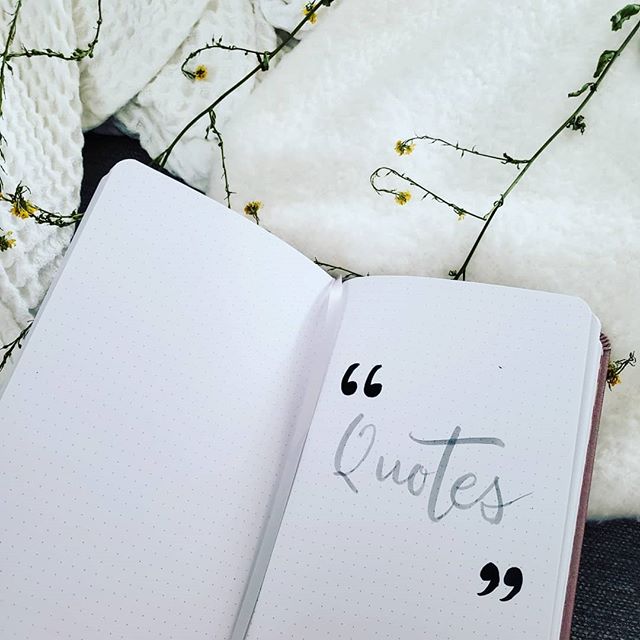 “
Quotes
”